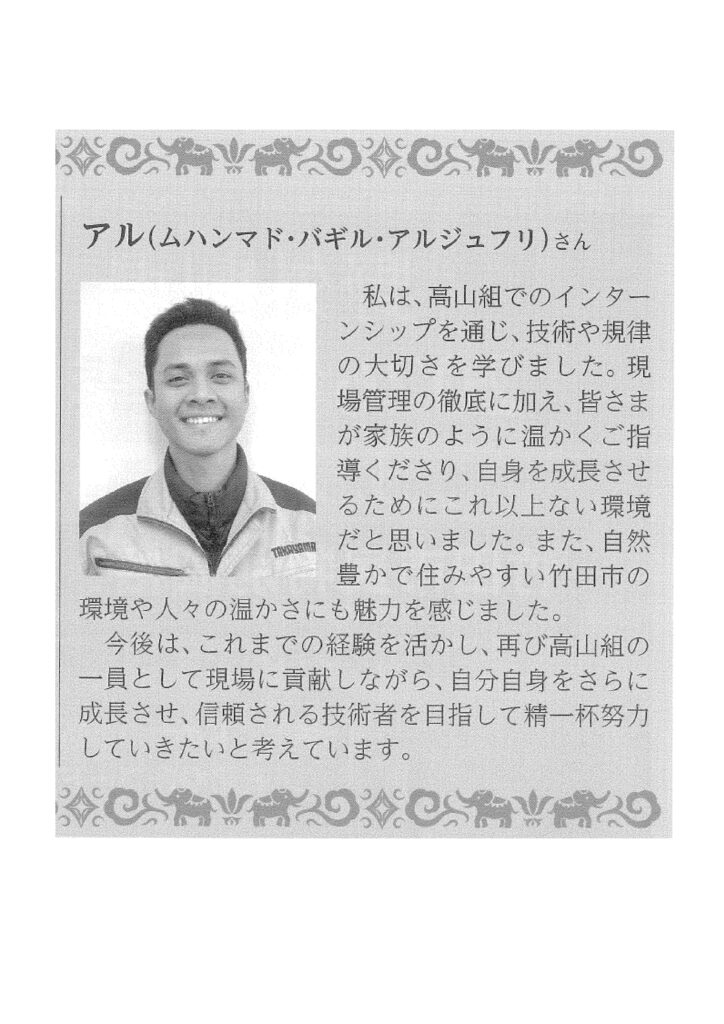 アル(ムハンマド・バギル・アルジュフリ)さん
私は、高山組でのインター
ンシップを通じ、技術や規律
の大切さを学びました。現
場管理の徹底に加え、皆さま
が家族のように温かくご指
導くださり、自身を成長させ
るためにこれ以上ない環境
だと思いました。また、自然
豊かで住みやすい竹田市の
環境や人々の温かさにも魅力を感じました。
今後は、これまでの経験を活かし、再び高山組の
一員として現場に貢献しながら、自分自身をさらに
成長させ、信頼される技術者を目指して精一杯努力
していきたいと考えています。
TAKAYAMA